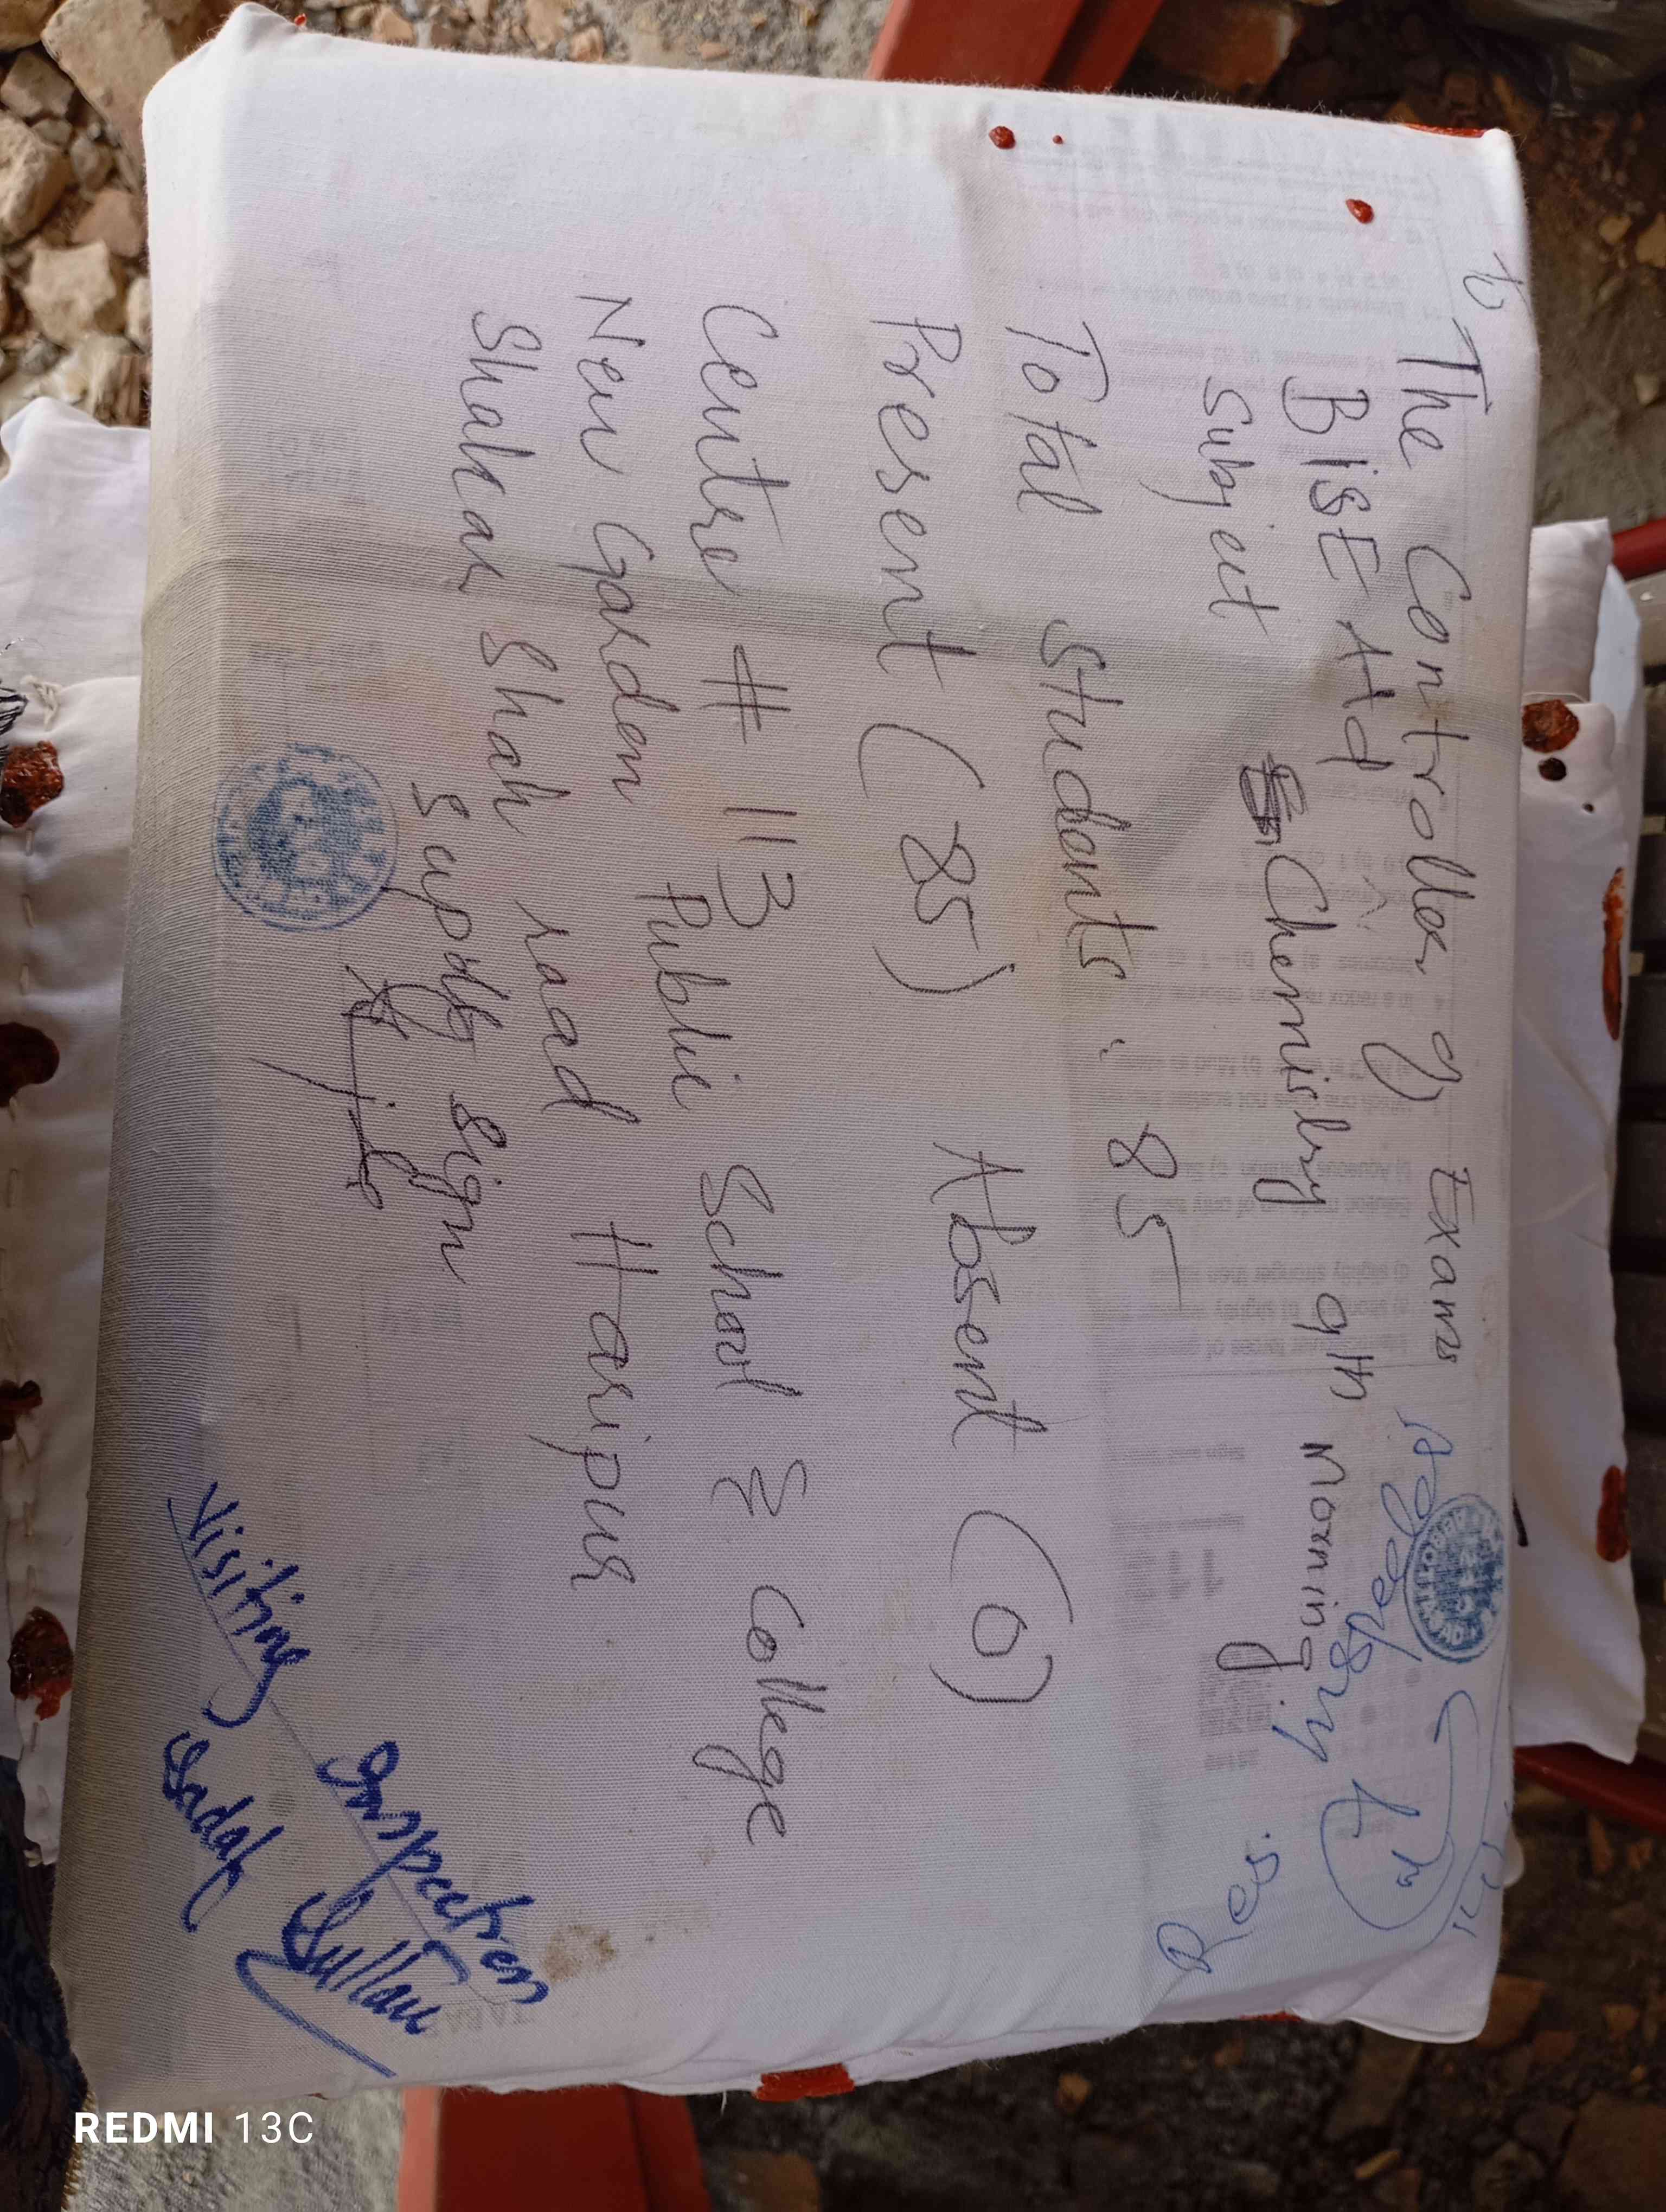 to
The Controller of Exams
BISE Atd
Subject Chemistry 9th Morning
Total Students : 85
Present (85) Absent (0)
Centre # 113
New Garden Public School & College
Shakar Shah road Haripur
Supdt sign
Res. Inspector
Visiting Inspection
Sadaf Sultan
REDMI 13C